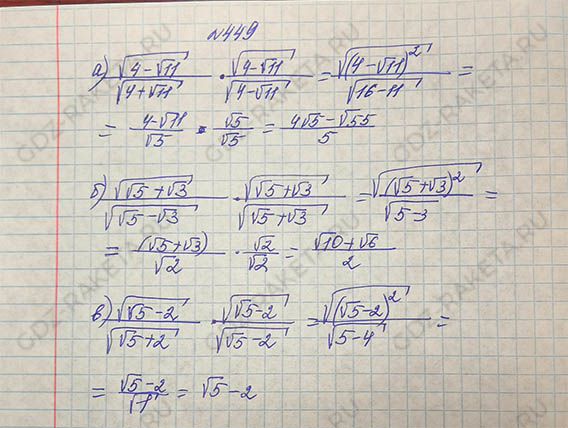 №449
а) √(4-√11)/√(4+√11) · √(4-√11)/√(4-√11) = √((4-√11)²)/√(16-11) =
= (4-√11)/√5 · √5/√5 = (4√5-√55)/5
б) √(√5+√3)/√(√5-√3) · √(√5+√3)/√(√5+√3) = √((√5+√3)²)/√(5-3) =
= (√5+√3)/√2 · √2/√2 = (√10+√6)/2
в) √(√5-2)/√(√5+2) · √(√5-2)/√(√5-2) = √((√5-2)²)/√(5-4) =
= (√5-2)/√1 = √5-2
GDZ-RAKETA.RU